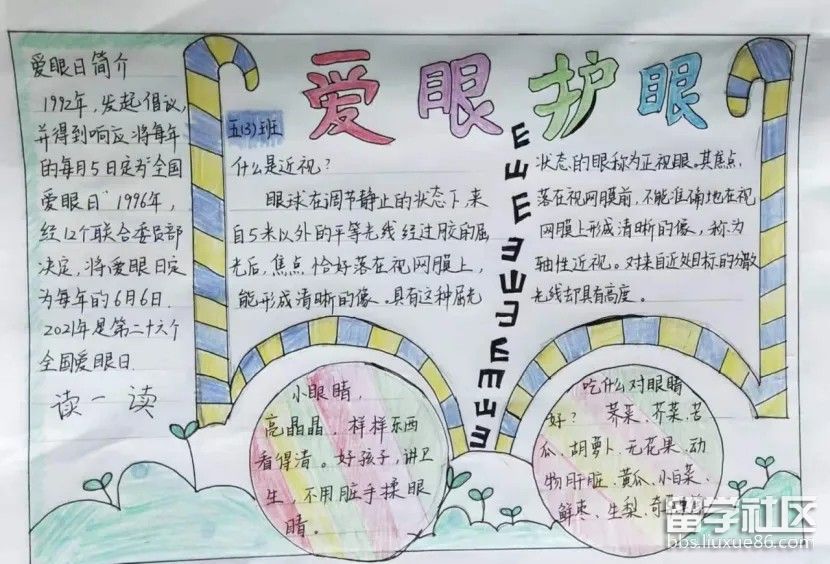 爱眼护眼
五(3)班
爱眼日简介
1992年，发起倡议，
并得到响应将每年
的每月5日定为"全国
爱眼日"1996年，
经12个联合委员部
决定，将爱眼日定
为每年的6月6日.
2021年是第二十六个
全国爱眼日.
读一读
什么是近视？
眼球在调节静止的状态下，来
自5米以外的平等光线经过胶的屈
光后，焦点恰好落在视网膜上，
能形成清晰的像。具有这种屈光
状态的眼称为正视眼。其焦点，
落在视网膜前，不能准确地在视
网膜上形成清晰的像，称为
轴性近视。对来自近处目标的散
光线却具有高度。
小眼睛，
亮晶晶，样样东西
看得清。好孩子，讲卫
生，不用脏手揉眼
睛。
吃什么对眼睛
好？荠菜、芥菜、苦
瓜、胡萝卜、无花果、动
物肝脏、黄瓜、小白菜、
鲜枣、生梨、奇
留学社区
bbs.liuxue86.com